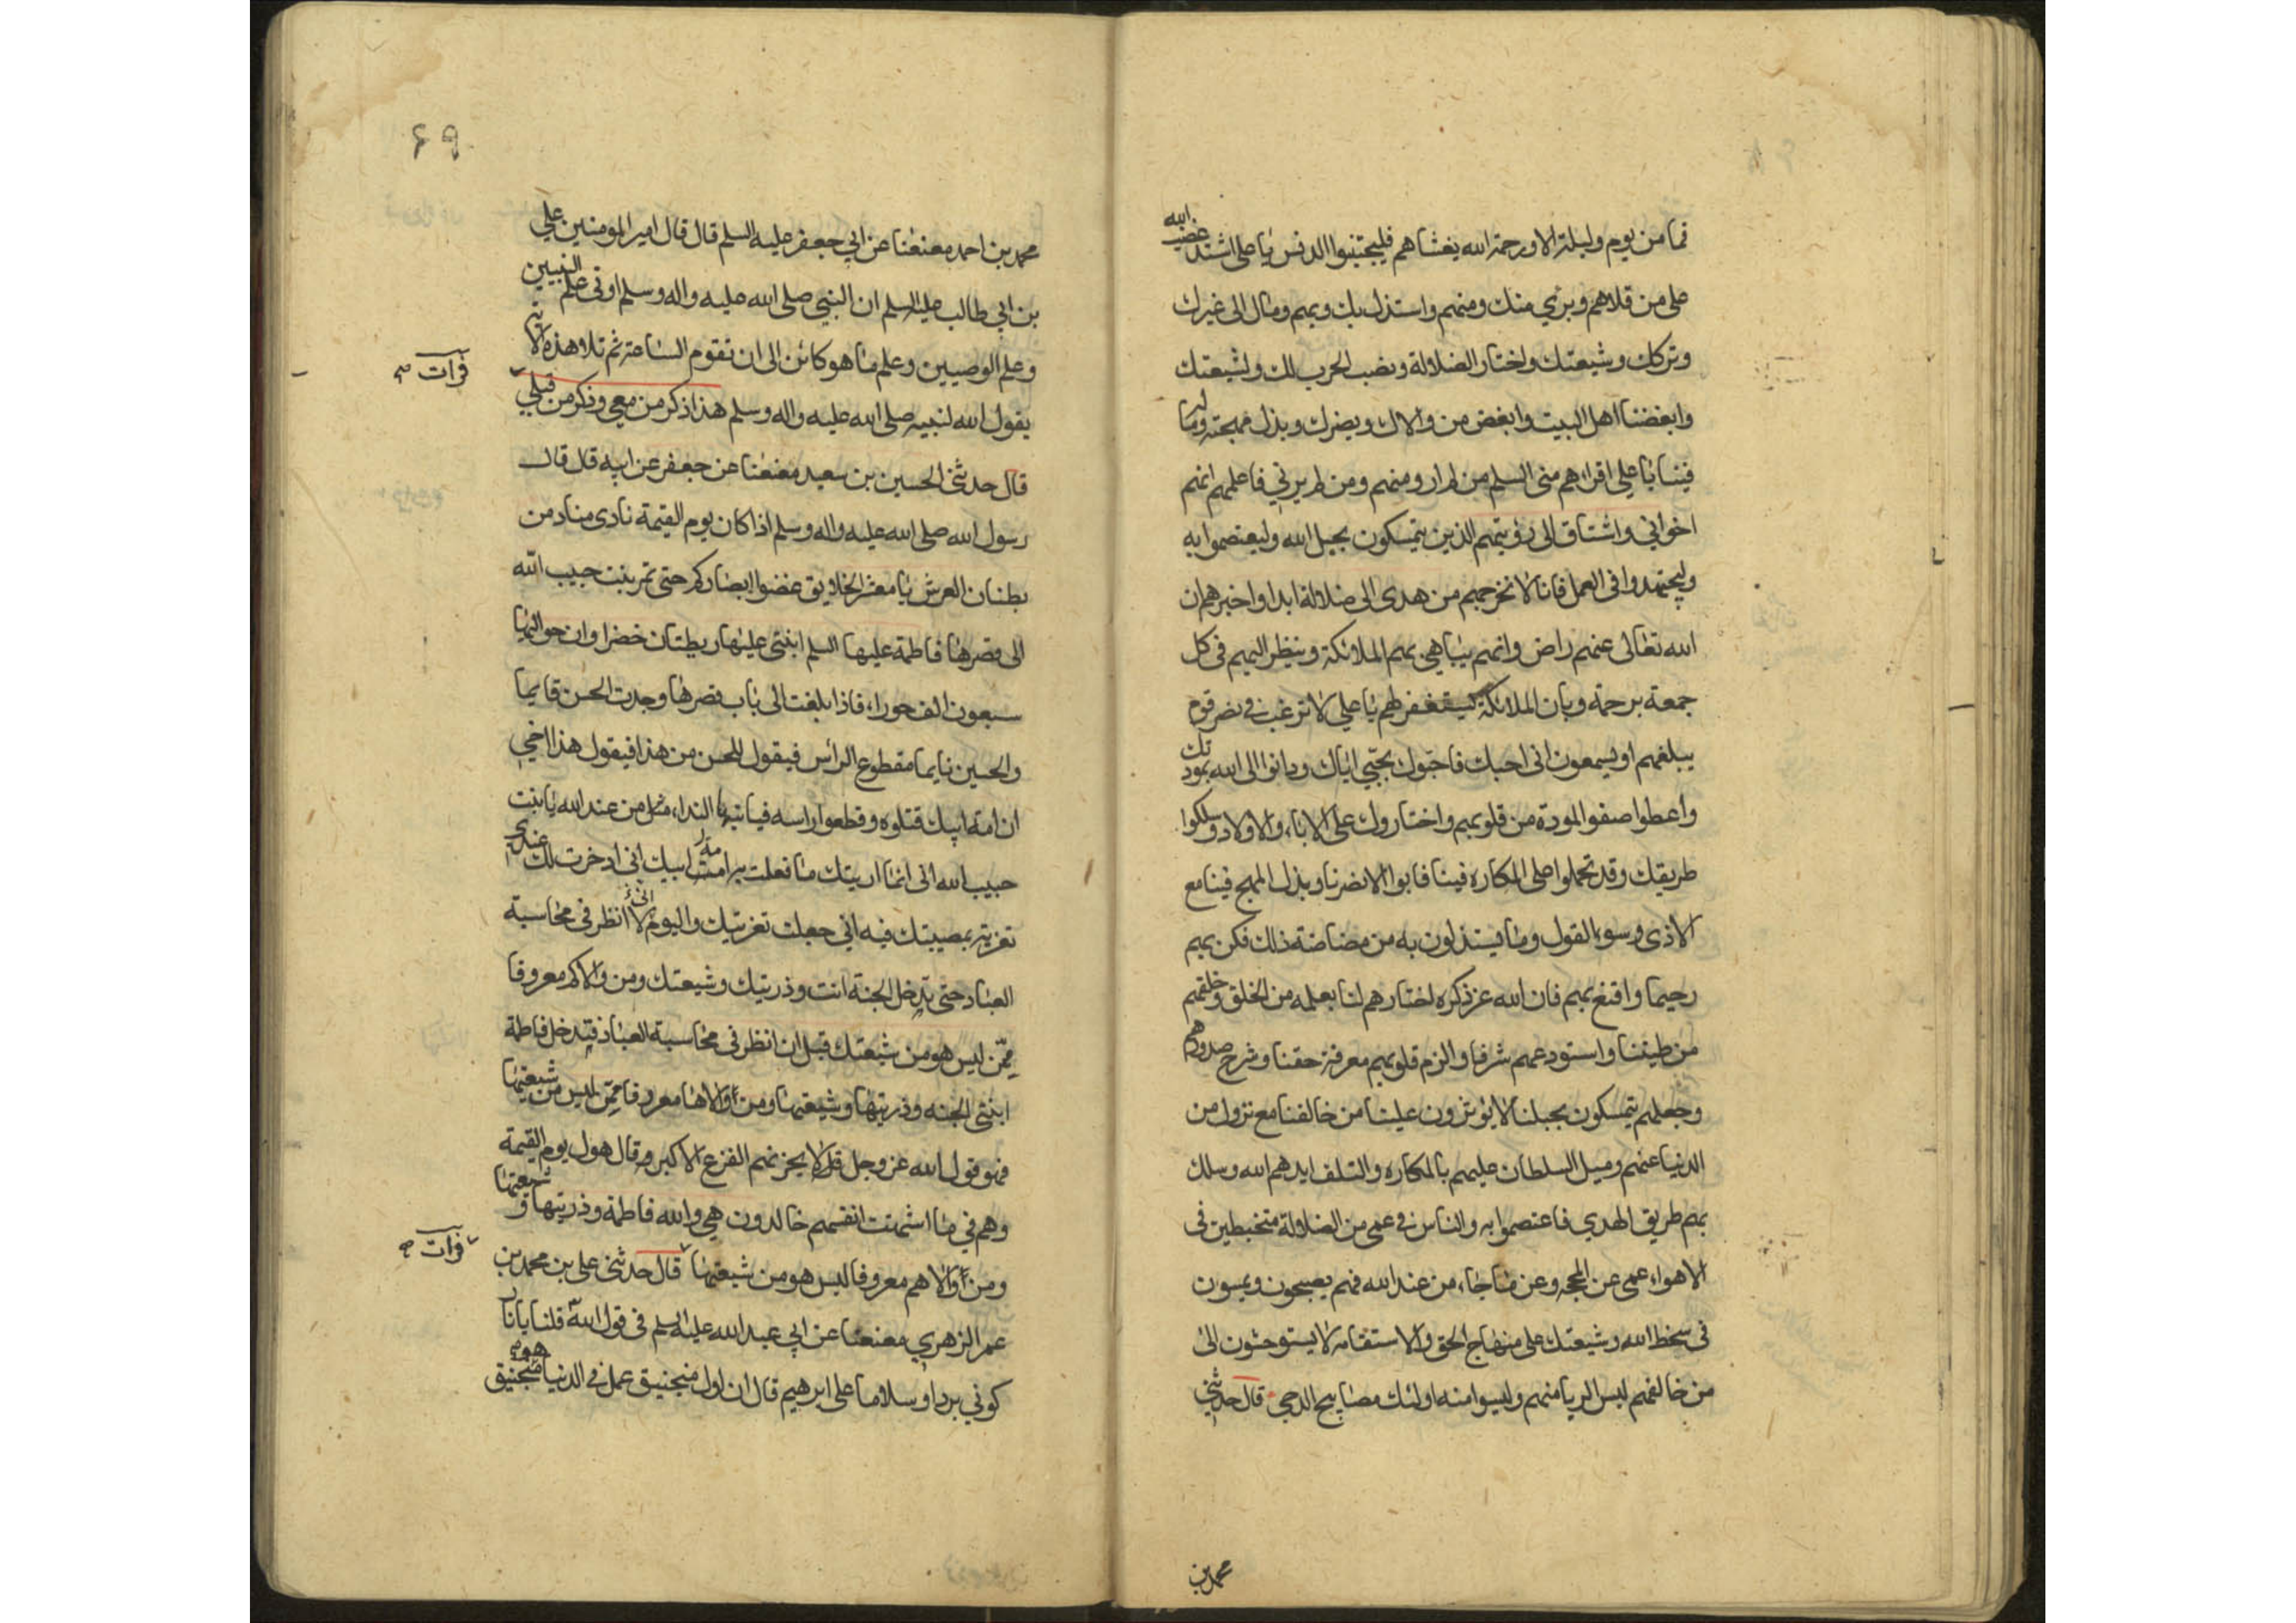 فما من يوم وليلة الا ورحمة الله يغشاهم فليجتنبوا الدنس يا علي اشتد غضب الله
على من قلاهم وبري منك ومنهم واستذل بك وبهم ومال الى غيرك
وتركك وشيعتك واختار الضلالة ونصب الحرب لك ولشيعتك
وابغضنا اهل البيت وابغض من والاك وبضرك وبذل مهجته وماله
فينا يا علي اقراهم مني السلم من لم ار ومنهم ومن لم يرني فاعلمهم انهم
اخواني واشتاق الى رؤيتهم الذين يتمسكون بحبل الله وليعتصموا به
وليجتهدوا في العمل فانا لا نخرجهم من هدى الى ضلالة ابدا واخبرهم ان
الله تعالى عنهم راض وانهم يباهي بهم الملائكة وينظر اليهم في كل
جمعة برحمة وبان الملائكة ليستغفر لهم يا علي لا ترغب في نصر قوم
يبلغهم او يسمعون انى احبك فاحبوك بحبي اياك ودانوا الى الله بمودتك
واعطوا صفو المودة من قلوبهم واختاروك على الاباء والاولاد وسلكوا
طريقك وقد تحملوا على المكاره فينا فابوا الا نصرنا وبذل المهج فينا مع
الاذى وسوء القول وما يستذلون به من مضاضة ذلك فكن بهم
رحيما واقنع بهم فان الله عز ذكره اختارهم لنا بعلمه من الخلق وخلقهم
من طينتنا واستودعهم شرفا والزم قلوبهم معرفة حقنا وشرح صدورهم
وجعلهم يتمسكون بحبلنا لا يؤثرون علينا من خالفنا مع نزول من
الدنيا عنهم وميل السلطان عليهم بالمكاره والتلف ايدهم الله وسلك
بهم طريق الهدي فاعتصموا به والناس في عمى من الضلالة متخبطين في
الاهواء عمى عن المحجة وعن ما جاء من عند الله فهم يصبحون ويمسون
في سخط الله وشيعتك على منهاج الحق والاستقامة لا يستوحشون الى
من خالفهم ليس الريا منهم وليسوا منه اولئك مصابيح الدجى قال حدثني
محمد بن
۶۹
محمد بن احمد معنعنا عن ابي جعفر عليه السلم قال قال امير المومنين علي
بن ابي طالب عليه السلم ان النبي صلى الله عليه واله وسلم اوتي علم النبيين
وعلم الوصيين وعلم ما هو كائن الى ان تقوم الساعة ثم تلا هذه الاية
فرات
يقول الله لنبيه صلى الله عليه واله وسلم هذا ذكر من معي وذكر من قبلي
قال حدثني الحسين بن سعيد معنعنا عن جعفر عن ابيه قال قال
رسول الله صلى الله عليه واله وسلم اذا كان يوم القيمة نادى مناد من
بطنان العرش يا معشر الخلايق غضوا ابصاركم حتى تمر بنت حبيب الله
الى قصرها فاطمة عليها السلم ابنتي عليها ريطتان خضرا وان حواليها
سبعون الف حوراء فاذا بلغت الى باب قصرها وجدت الحسن قايما
والحسين نايما مقطوع الراس فيقول للحسن من هذا فيقول هذا اخي
ان امة ابيك قتلوه وقطعوا راسه فياتيها النداء من عند الله يا بنت
حبيب الله انى انما اريتك ما فعلت به امة ابيك انى ادخرت لك عندي
تعزية بمصيبتك فيه اني جعلت تعزيتك واليوم اني لا انظر في محاسبة
العباد حتى تدخل الجنة انت وذريتك وشيعتك ومن والاكم معروفا
ممن ليس هو من شيعتك قبل ان انظر في محاسبة العباد فتدخل فاطمة
ابنتي الجنه وذريتها وشيعتها ومن اولاها معروفا ممن ليس من شيعتها
فهو قول الله عز وجل قال لا يحزنهم الفزع الاكبر وقال هول يوم القيمة
وهم في ما اشتهت انفسهم خالدون هي والله فاطمة وذريتها وشيعتها
ومن اولاهم معروفا ليس هو من شيعتها قال حدثني علي بن محمد بن
فرات
عمر الزهري معنعنا عن ابي عبد الله عليه السلم في قول الله قلنا يا نار
كوني بردا وسلاما على ابرهيم قال ان اول منجنيق عمل في الدنيا منجنيق